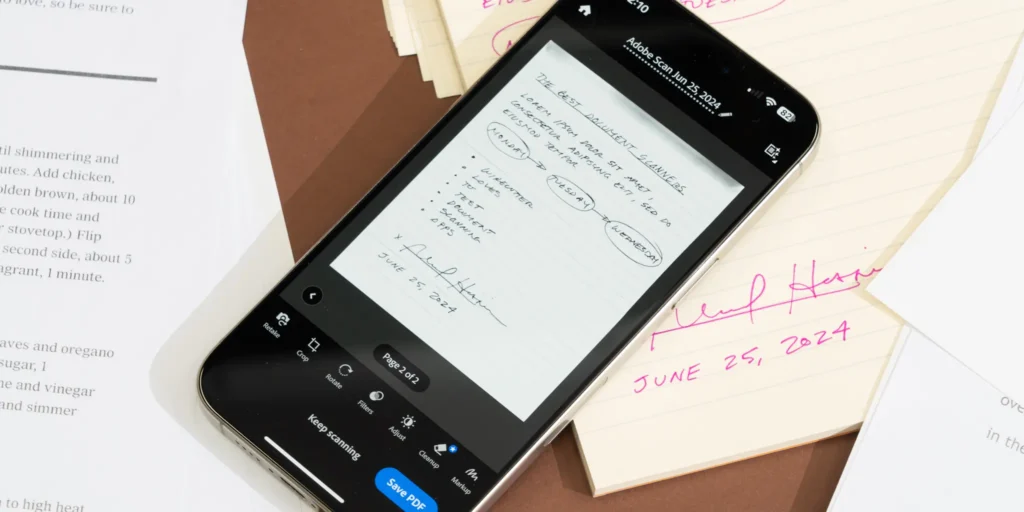 to love, so be sure to
til shimmering and
utes. Add chicken,
olden brown, about 10
e cook time and
r stovetop.) Flip
second side, about 5
agrant, 1 minute.
aves and oregano
sugar, 1
ne and vinegar
and simmer
to high heat
2:10
82
Adobe Scan Jun 25, 2024
THE BEST DOCUMENT SCANNERS
LOREM IPSUM DOLOR SIT AMET,
CONSECTETUR ADIPISCING ELIT, SED DO
EIUSMOD TEMPOR
MONDAY → TUESDAY → WEDNESDAY
• WIRECUTTER
• LOVES
• TO TEST
• DOCUMENT
• SCANNING
• APPS
X
JUNE 25, 2024
Page 2 of 2
Retake
Crop
Rotate
Filters
Adjust
Cleanup
Markup
Keep scanning
Save PDF
JUNE 25, 2024
ove
in the